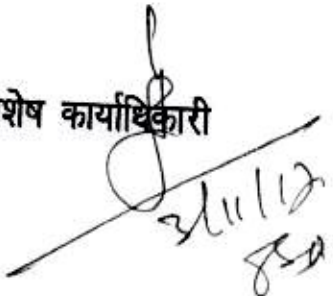 शेष कार्याधिकारी
3/11/12